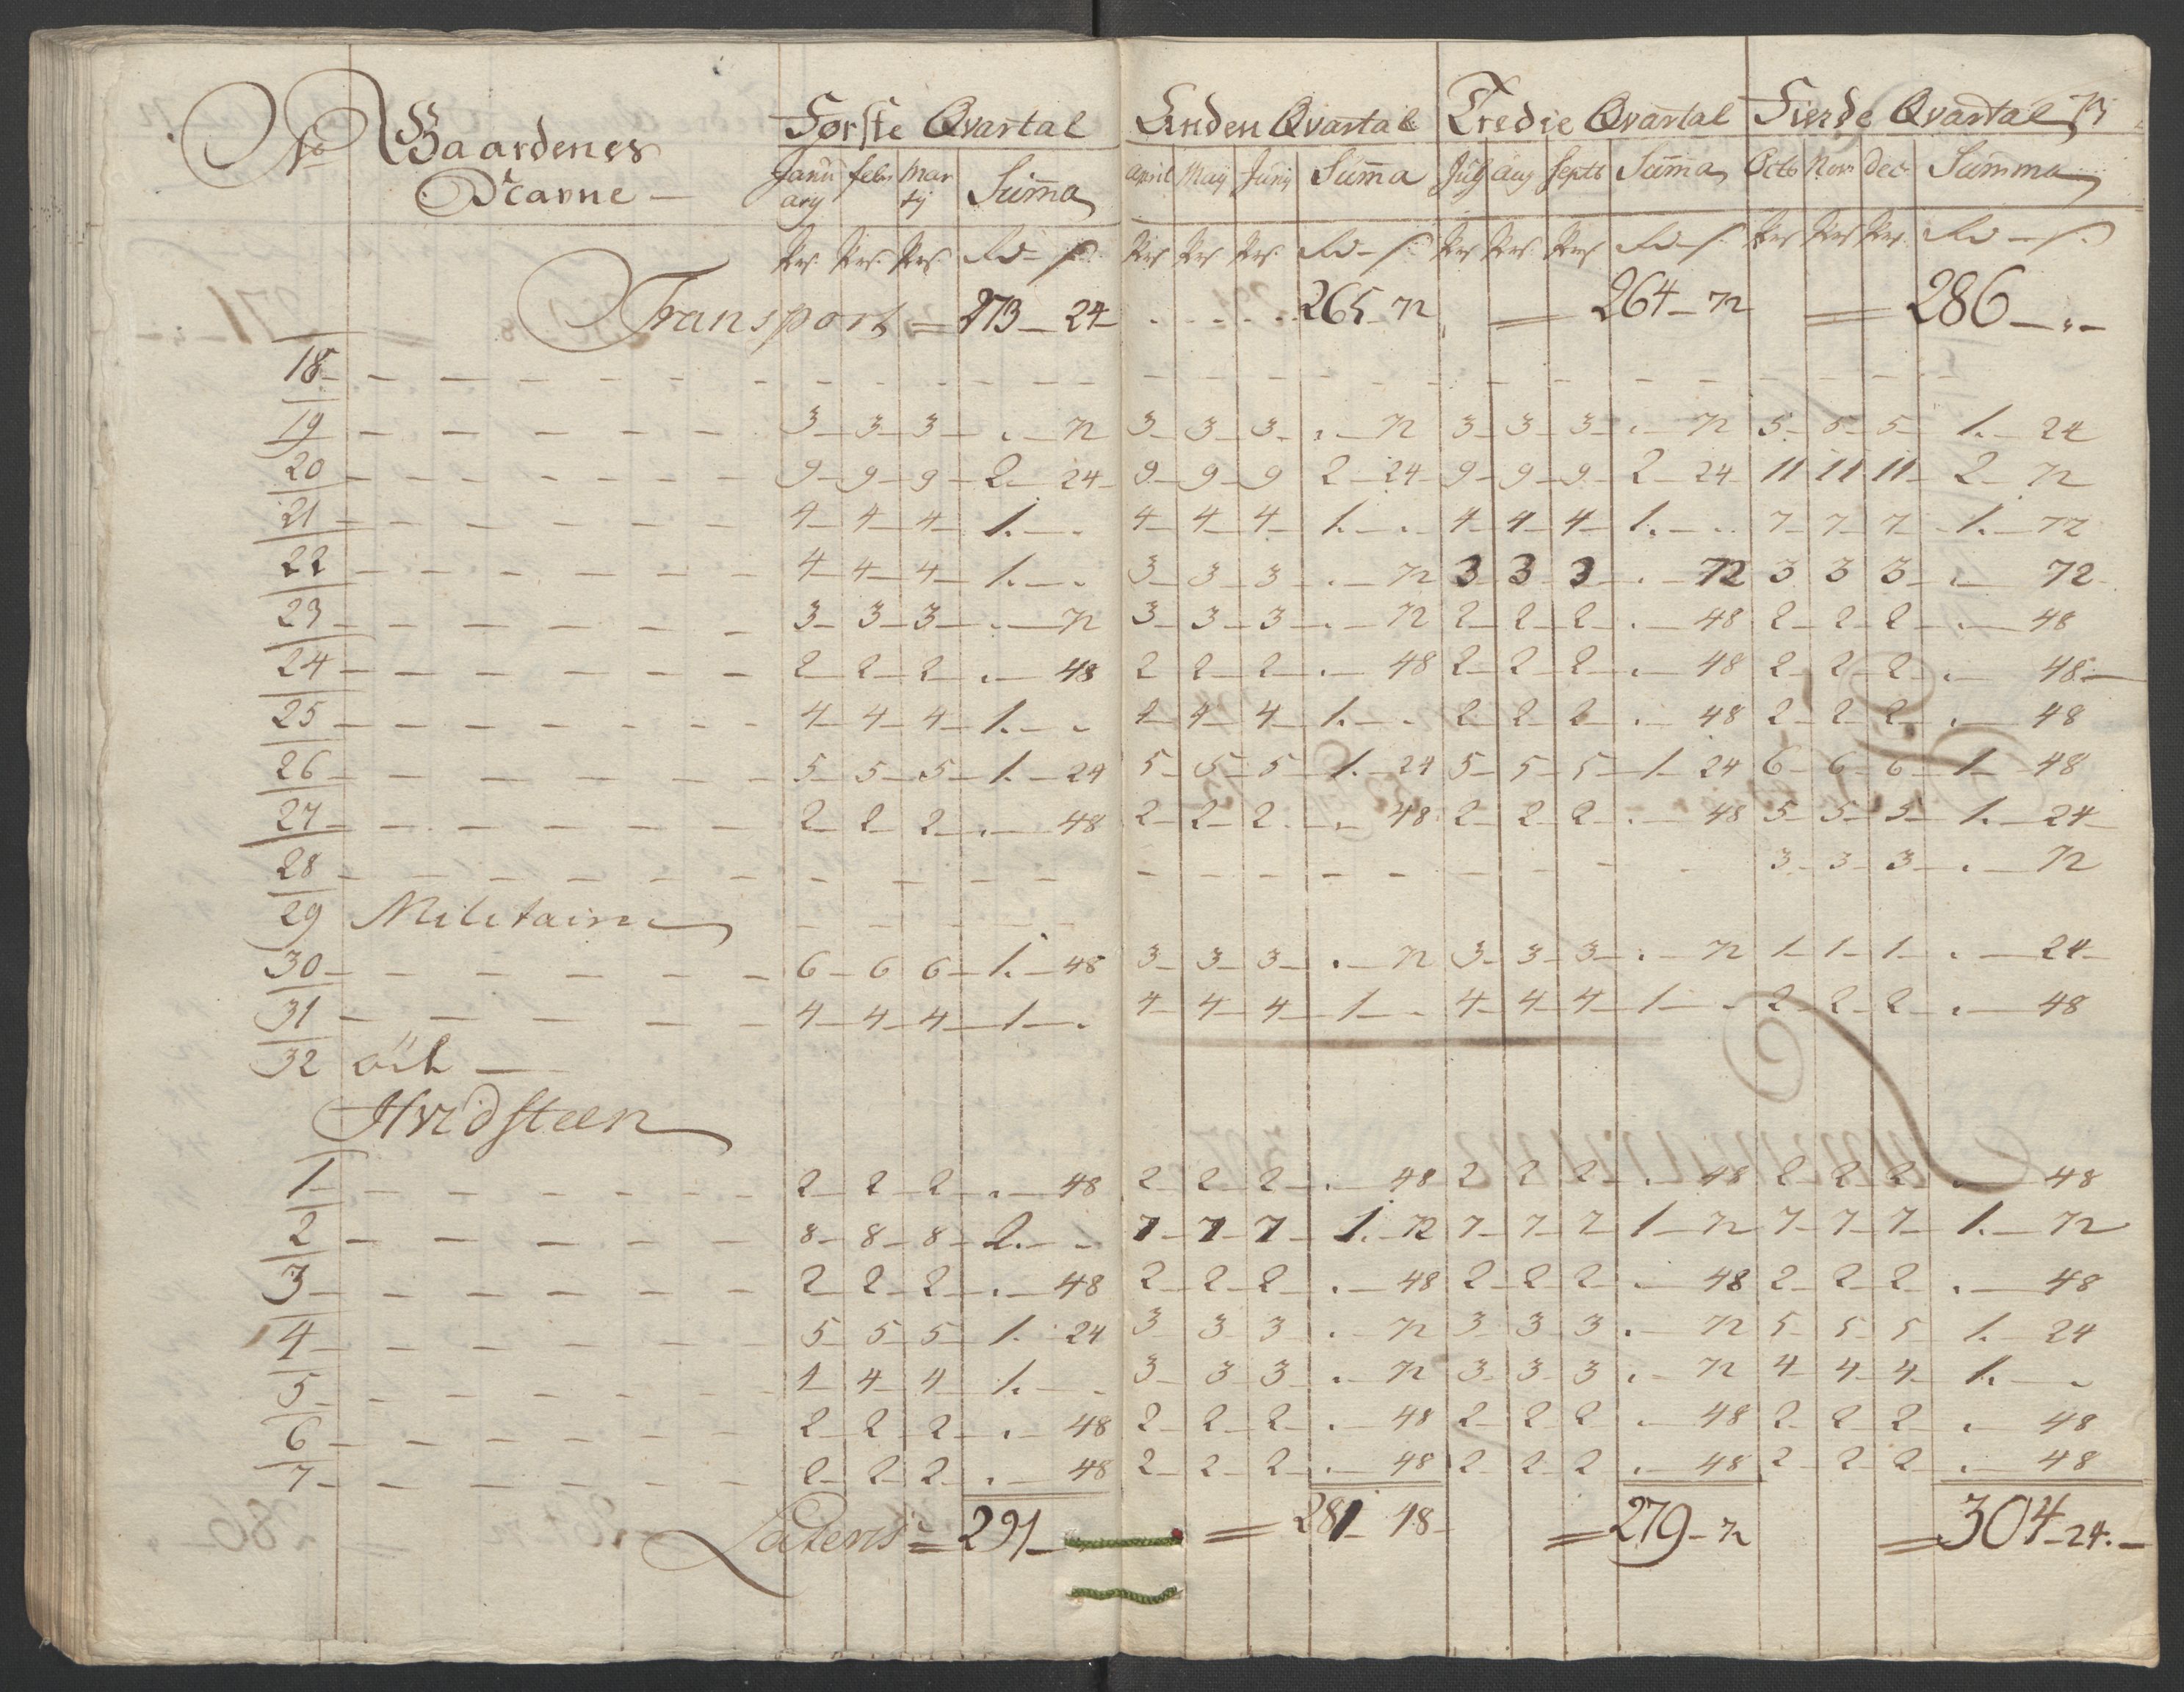 No Gaardenes Navne — Første Qvartal Anden Qvartal Tredie Qvartal Fierde Qvartal
January febr Marty Suma April Maÿ Junÿ Suma Julÿ aug septb Suma Octb Novr Decr Summa
Prs. Prs. Prs. Rd – s. Prs Prs Prs. Rd – s. Prs Prs Prs Rd – s. Prs Prs Prs. Rd – s.
Transport = 273 – 24 265 – 72 = 264 – 72 = 286 – . –
18 – – – –
19 – 3 – 3 – 3 – . – 72 3 – 3 – 3 – . – 72 3 – 3 – 3 – . – 72 5 – 5 – 5 – 1. – 24
20 – 9 – 9 – 9 – 2 – 24 9 – 9 – 9 2 – 24 9 – 9 – 9 2 – 24 11 11 11 – 2 – 72
21 – 4 – 4 – 4 – 1. – . 4 – 4 – 4 1. – . 4 – 4 4 1. – . 7 – 7 – 7 – 1. – 72
22 – 4 – 4 – 4 – 1. – . 3 – 3 – 3 – . – 72 3 3 3 . – 72 3 3 3 – . – 72
23 – 3 – 3 – 3 – . – 72 3 – 3 – 3 – . – 72 2 – 2 – 2 – . – 48 2 – 2 – 2 – . – 48
24 – 2 2 – 2 – . – 48 2 – 2 – 2 – . – 48 2 – 2 – 2 – . – 48 2 – 2 – 2 – . – 48
25 – 4 – 4 – 4 – 1. – . 4 – 4 – 4 – 1. – . 2 – 2 – 2 – . – 48 2 – 2 – 2 – . – 48
26 – 5 – 5 – 5 – 1. – 24 5 – 5 – 5 – 1. – 24 5 – 5 – 5 – 1 – 24 6 – 6 – 6 – 1 – 48
27 – 2 – 2 – 2 – . – 48 2 – 2 – 2 – . – 48 2 – 2 – 2 – . – 48 5 – 5 – 5 – 1. – 24
28 – – – – 3 – 3 – 3 – . – 72
29 Militaire
30 – 6 – 6 6 – 1. – 48 3 – 3 – 3 – . – 72 3 – 3 – 3 – . – 72 1 – 1 – 1 – . – 24
31 – 4 – 4 – 4 – 1 – . 4 – 4 – 4 – 1 – . 4 – 4 – 4 1 – . 2 – 2 – 2 – . – 48
32 öde —
Hvidsteen
1 – 2 – 2 – 2 – . – 48 2 – 2 – 2 – . – 48 2 2 2 – . – 48 2 – 2 – 2 – . – 48
2 – 8 – 8 – 8 – 2. – . 7 – 7 – 7 – 1. – 72 7 – 7 – 7 1 – 72 7 – 7 – 7 – 1. – 72
3 – 2 – 2 – 2 – . – 48 2 – 2 – 2 – . – 48 2 – 2 – 2 – . – 48 2 – 2 – 2 – . – 48
4 – 5 – 5 – 5 – 1. – 24 3 – 3 – 3 – . – 72 3 – 3 – 3 . – 72 5 – 5 – 5 1. – 24
5 – 4 – 4 – 4 1. – . 3 – 3 – 3 – . – 72 3 – 3 – 3 . – 72 4 – 4 – 4 – 1. – .
6 – 2 – 2 – 2 – . – 48 2 – 2 – 2 – . – 48 2 – 2 2 . – 48 2 – 2 – 2 – . – 48
7 – 2 – 2 – 2 – . – 48 2 – 2 – 2 – . – 48 2 – 2 – 2 – . – 48 2 – 2 – 2 – . – 48
Lateris = 291 – = 281 – 48 – = 279 – 72 = 304 – 24. –